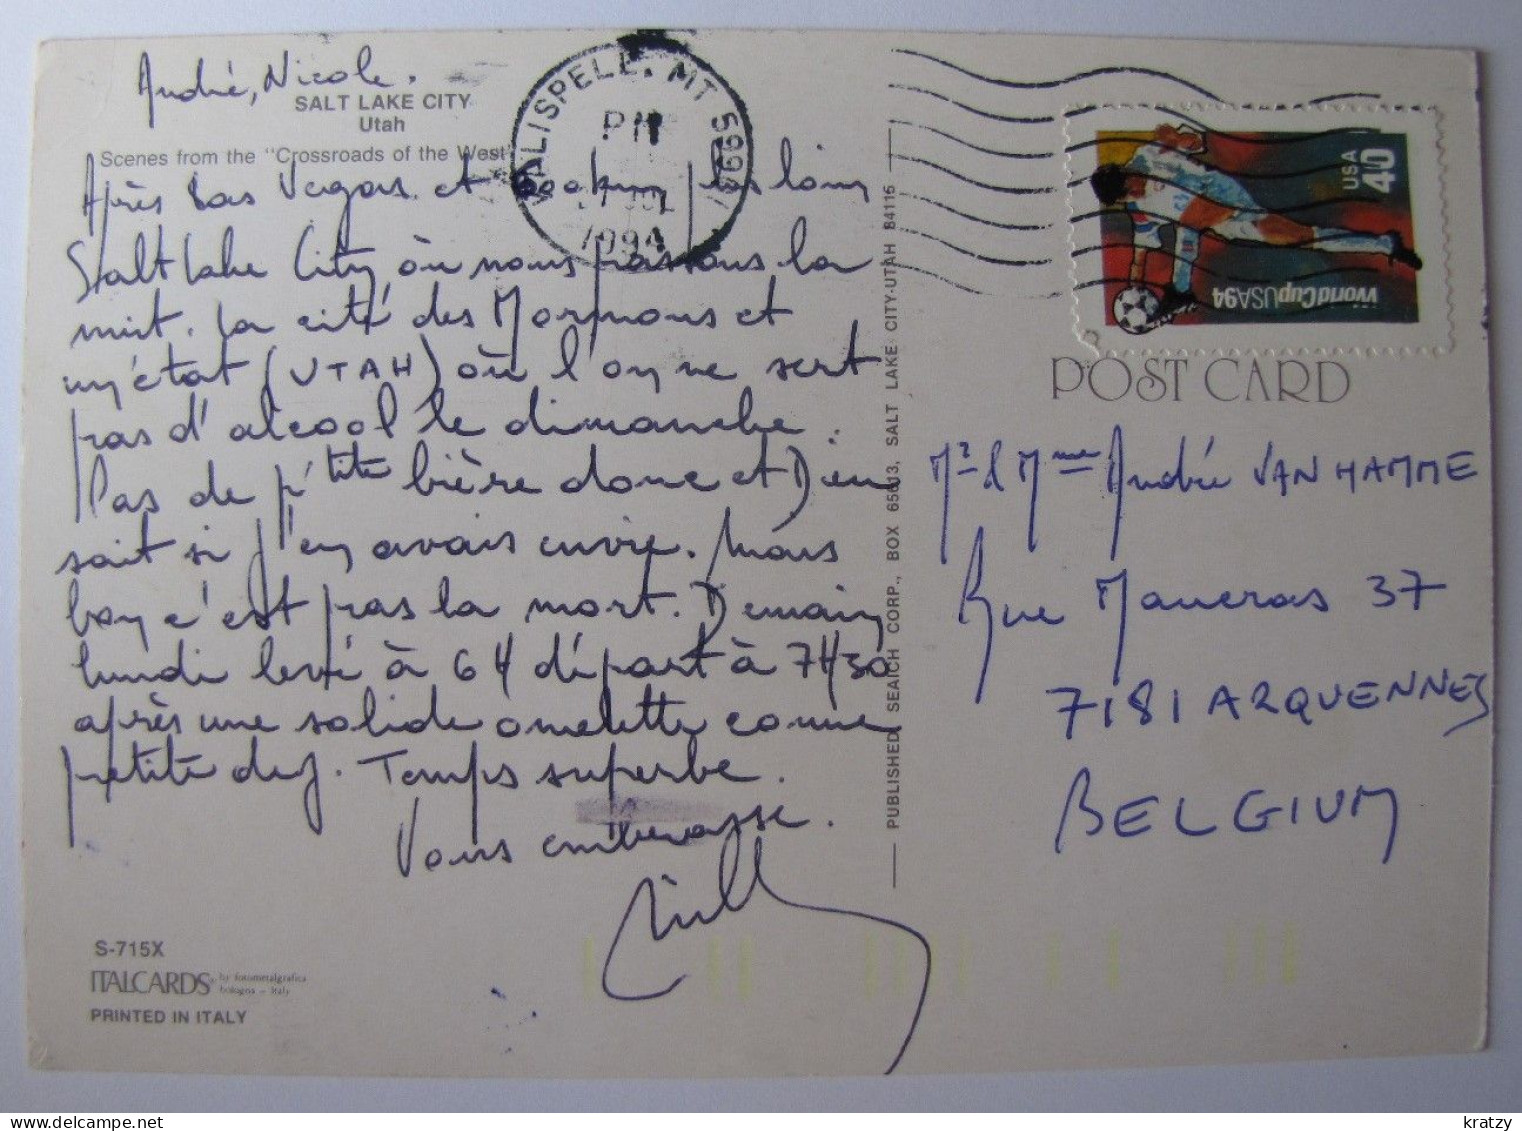 André, Nicole.
SALT LAKE CITY
Utah
Scenes from the "Crossroads of the West"
Après Las Vegas et plus loin
Salt Lake City où nous passons la
nuit. La cité des Mormons et
un état (UTAH) où l'on ne sert
pas d'alcool le dimanche.
Pas de p'tite bière donc et Dieu
sait si j'en avais envie. Mais
bon c'est pas la mort. Demain
lundi levé à 6H départ à 7H30
après une solide omelette comme
petit dej. Temps superbe.
Vous embrasse.
S-715X
ITALCARDS by fotometalgrafica
bologna - Italy
PRINTED IN ITALY
KALISPELL, MT 59901
PM
JUL
1994
PUBLISHED SEAICH CORP., BOX 65813, SALT LAKE CITY-UTAH 84115
USA
40
WorldCupUSA94
POST CARD
Mr & Mme André VANHAMME
Rue Maueras 37
7181 ARQUENNES
BELGIUM
kratzy